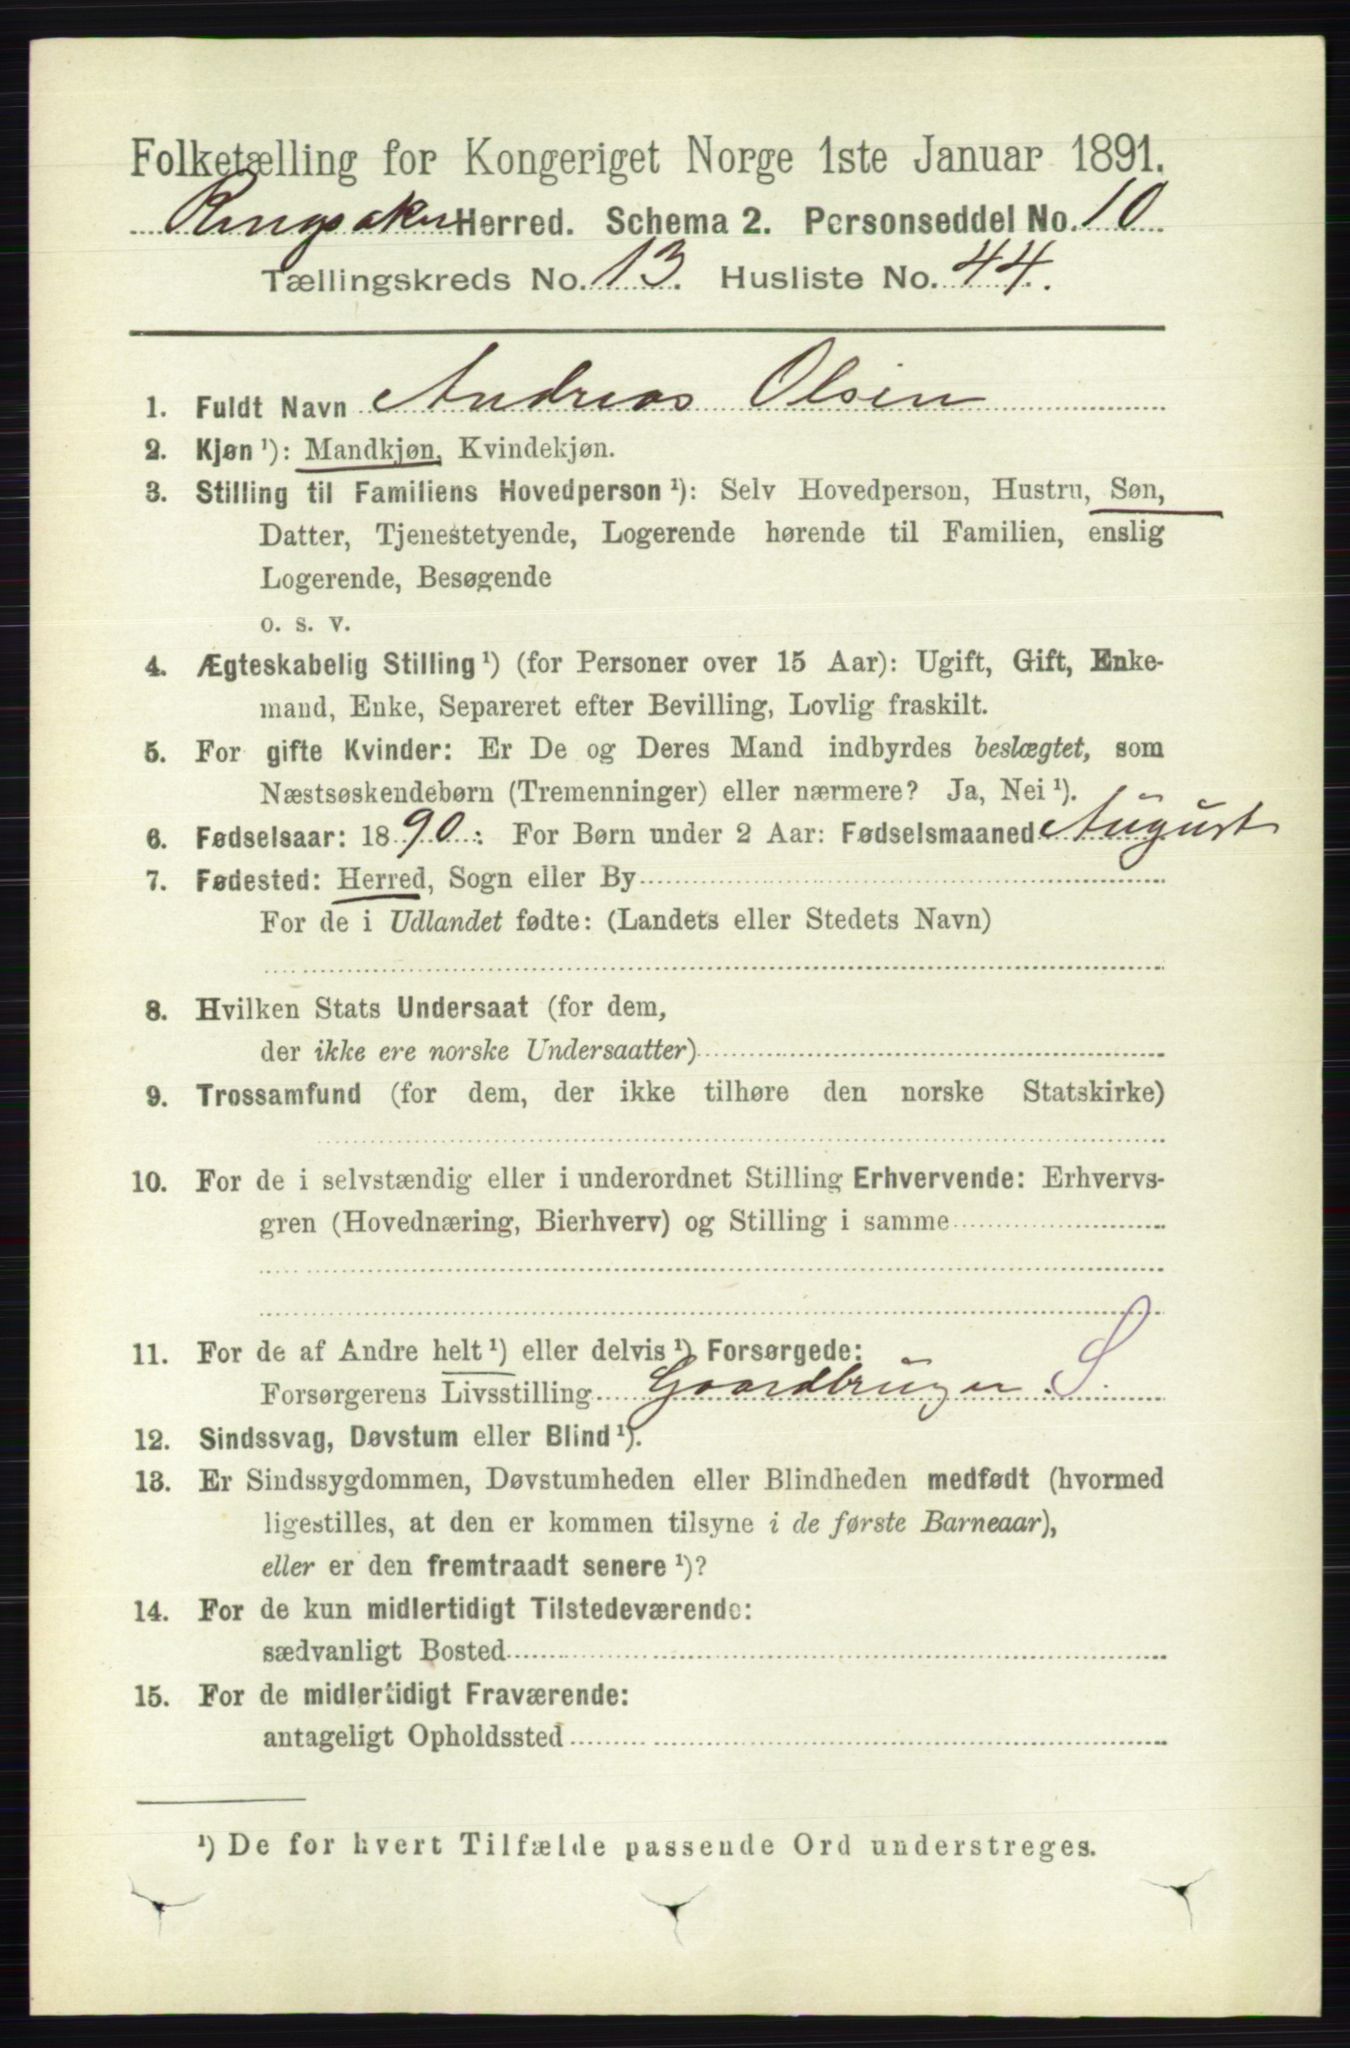 Folketælling for Kongeriget Norge 1ste Januar 1891.
Ringsaker Herred. Schema 2. Personseddel No. 10
Tællingskreds No. 13. Husliste No. 44.
1. Fuldt Navn Andreas Olsen
2. Kjøn ¹): Mandkjøn, Kvindekjøn.
3. Stilling til Familiens Hovedperson ¹): Selv Hovedperson, Hustru, Søn,
Datter, Tjenestetyende, Logerende hørende til Familien, enslig
Logerende, Besøgende
o. s. v.
4. Ægteskabelig Stilling ¹) (for Personer over 15 Aar): Ugift, Gift, Enke-
mand, Enke, Separeret efter Bevilling, Lovlig fraskilt.
5. For gifte Kvinder: Er De og Deres Mand indbyrdes beslægtet, som
Næstsøskendebørn (Tremenninger) eller nærmere? Ja, Nei ¹).
6. Fødselsaar: 1890: For Børn under 2 Aar: Fødselsmaaned August
7. Fødested: Herred, Sogn eller By
For de i Udlandet fødte: (Landets eller Stedets Navn)
8. Hvilken Stats Undersaat (for dem,
der ikke ere norske Undersaatter)
9. Trossamfund (for dem, der ikke tilhøre den norske Statskirke)
10. For de i selvstændig eller i underordnet Stilling Erhvervende: Erhvervs-
gren (Hovednæring, Bierhverv) og Stilling i samme
11. For de af Andre helt ¹) eller delvis ¹) Forsørgede:
Forsørgerens Livsstilling Gaardbruger S.
12. Sindssvag, Døvstum eller Blind ¹).
13. Er Sindssygdommen, Døvstumheden eller Blindheden medfødt (hvormed
ligestilles, at den er kommen tilsyne i de første Barneaar),
eller er den fremtraadt senere ¹)?
14. For de kun midlertidigt Tilstedeværende:
sædvanligt Bosted
15. For de midlertidigt Fraværende:
antageligt Opholdssted
¹) De for hvert Tilfælde passende Ord understreges.